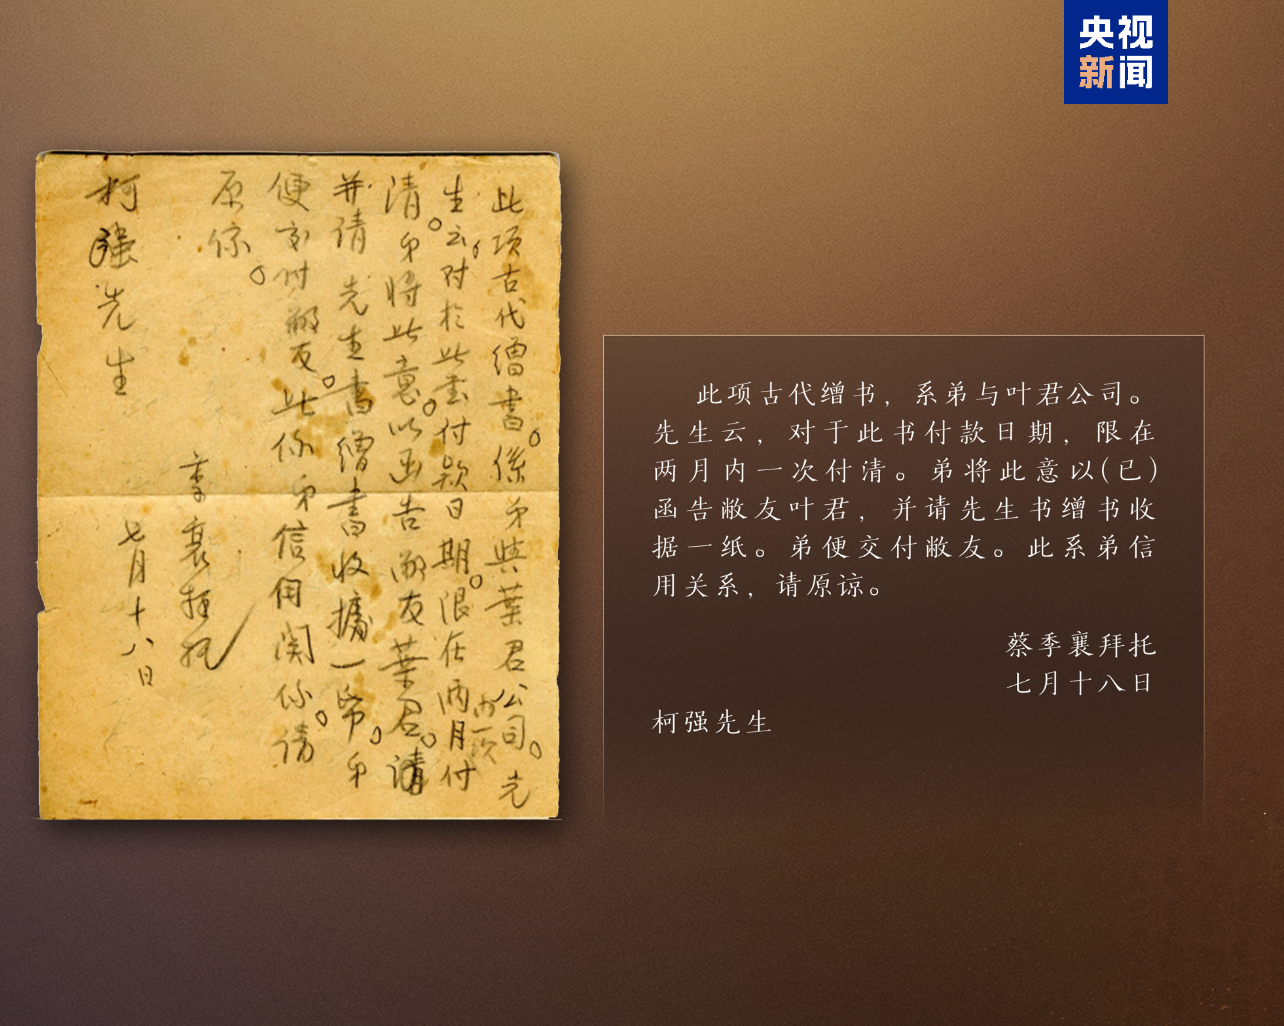 央视
新闻
此项古代缯書。係弟與葉君公司。先
生云，对於此書付款日期。限在两月内一次付
清。弟将此意以函告敝友葉君。请
并请 先生書缯書收據一帋。弟
便交付敝友。此係弟信用関係请
原谅。
季襄拜托
七月十八日
柯强先生
此项古代缯书，系弟与叶君公司。
先生云，对于此书付款日期，限在
两月内一次付清。弟将此意以(已)
函告敝友叶君，并请先生书缯书收
据一纸。弟便交付敝友。此系弟信
用关系，请原谅。
蔡季襄拜托
七月十八日
柯强先生